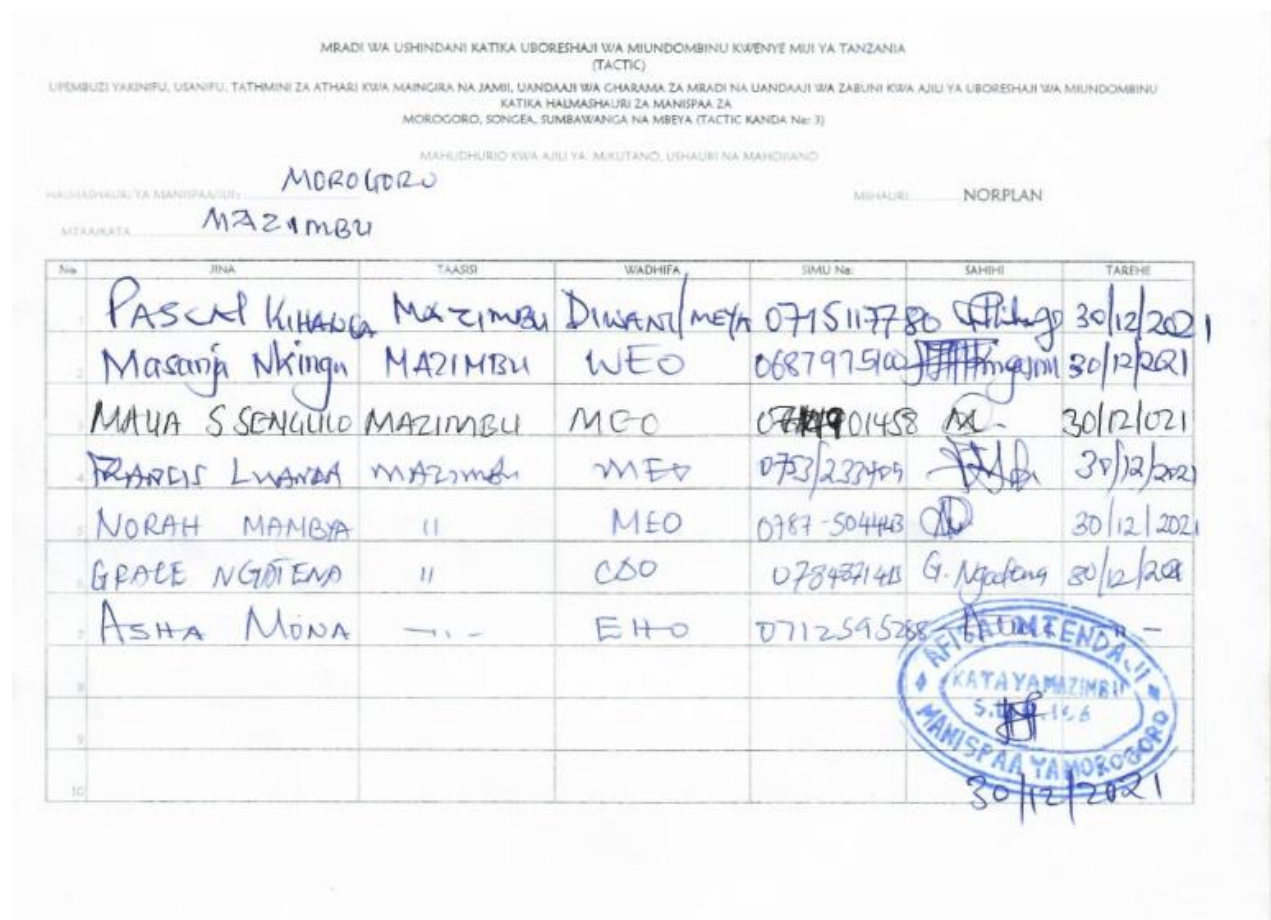 MRADI WA USHINDANI KATIKA UBORESHAJI WA MIUNDOMBINU KWENYE MIJI YA TANZANIA
(TACTIC)
UPEMBUZI YAKINIFU, USANIFU, TATHMINI ZA ATHARI KWA MAINGIRA NA JAMII, UANDAAJI WA GHARAMA ZA MRADI NA UANDAAJI WA ZABUNI KWA AJILI YA UBORESHAJI WA MIUNDOMBINU
KATIKA HALMASHAURI ZA MANISPAA ZA
MOROGORO, SONGEA, SUMBAWANGA NA MBEYA (TACTIC KANDA Na: 3)
MAHUDHURIO KWA AJILI YA: MIKUTANO, USHAURI NA MAHOJIANO
HALMASHAURI YA MANISPAA/JIJI: MOROGORO MSHAURI: NORPLAN
MTAA/KATA MAZIMBU
No. JINA TAASISI WADHIFA SIMU Na: SAHIHI TAREHE
1 PASCAL KIHANGA MAZIMBU DIWANI/MEYA 0715117780 30/12/2021
2 Masanja Nkingu MAZIMBU WEO 0687975100 30/12/2021
3 MAUA S SENGULILO MAZIMBU MEO 01458 30/12/021
4 FRANCIS LWANDA MAZIMBU MEO 0753/233409 30/12/2021
5 NORAH MAMBYA " MEO 0787-504443 30/12/2021
6 GRACE NGATENA " CDO G. Ngatena 30/12/2021
7 ASHA MONA -"- EHO 0712595288 -"-
8
9
10
AFISA MTENDAJI
KATA YA MAZIMBU
MANISPAA YA MOROGORO
30/12/2021